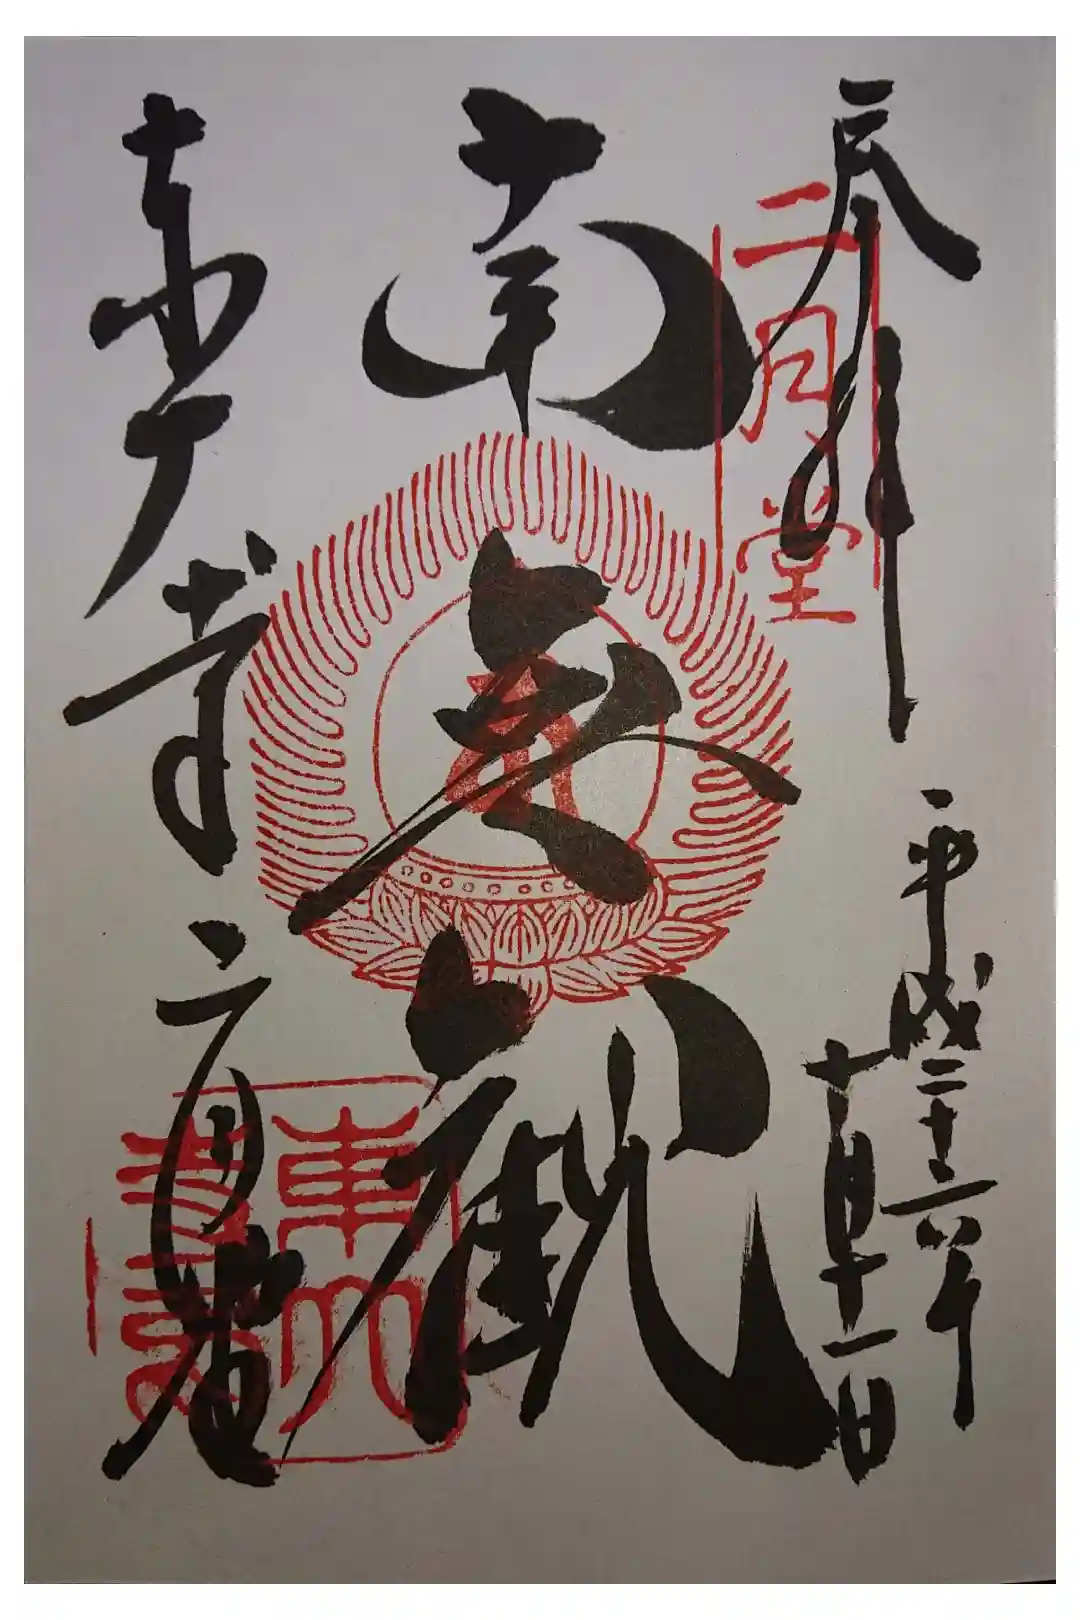 奉拝
二月堂
平成二十六年
十月十一日
南無観
東大寺二月堂
東大